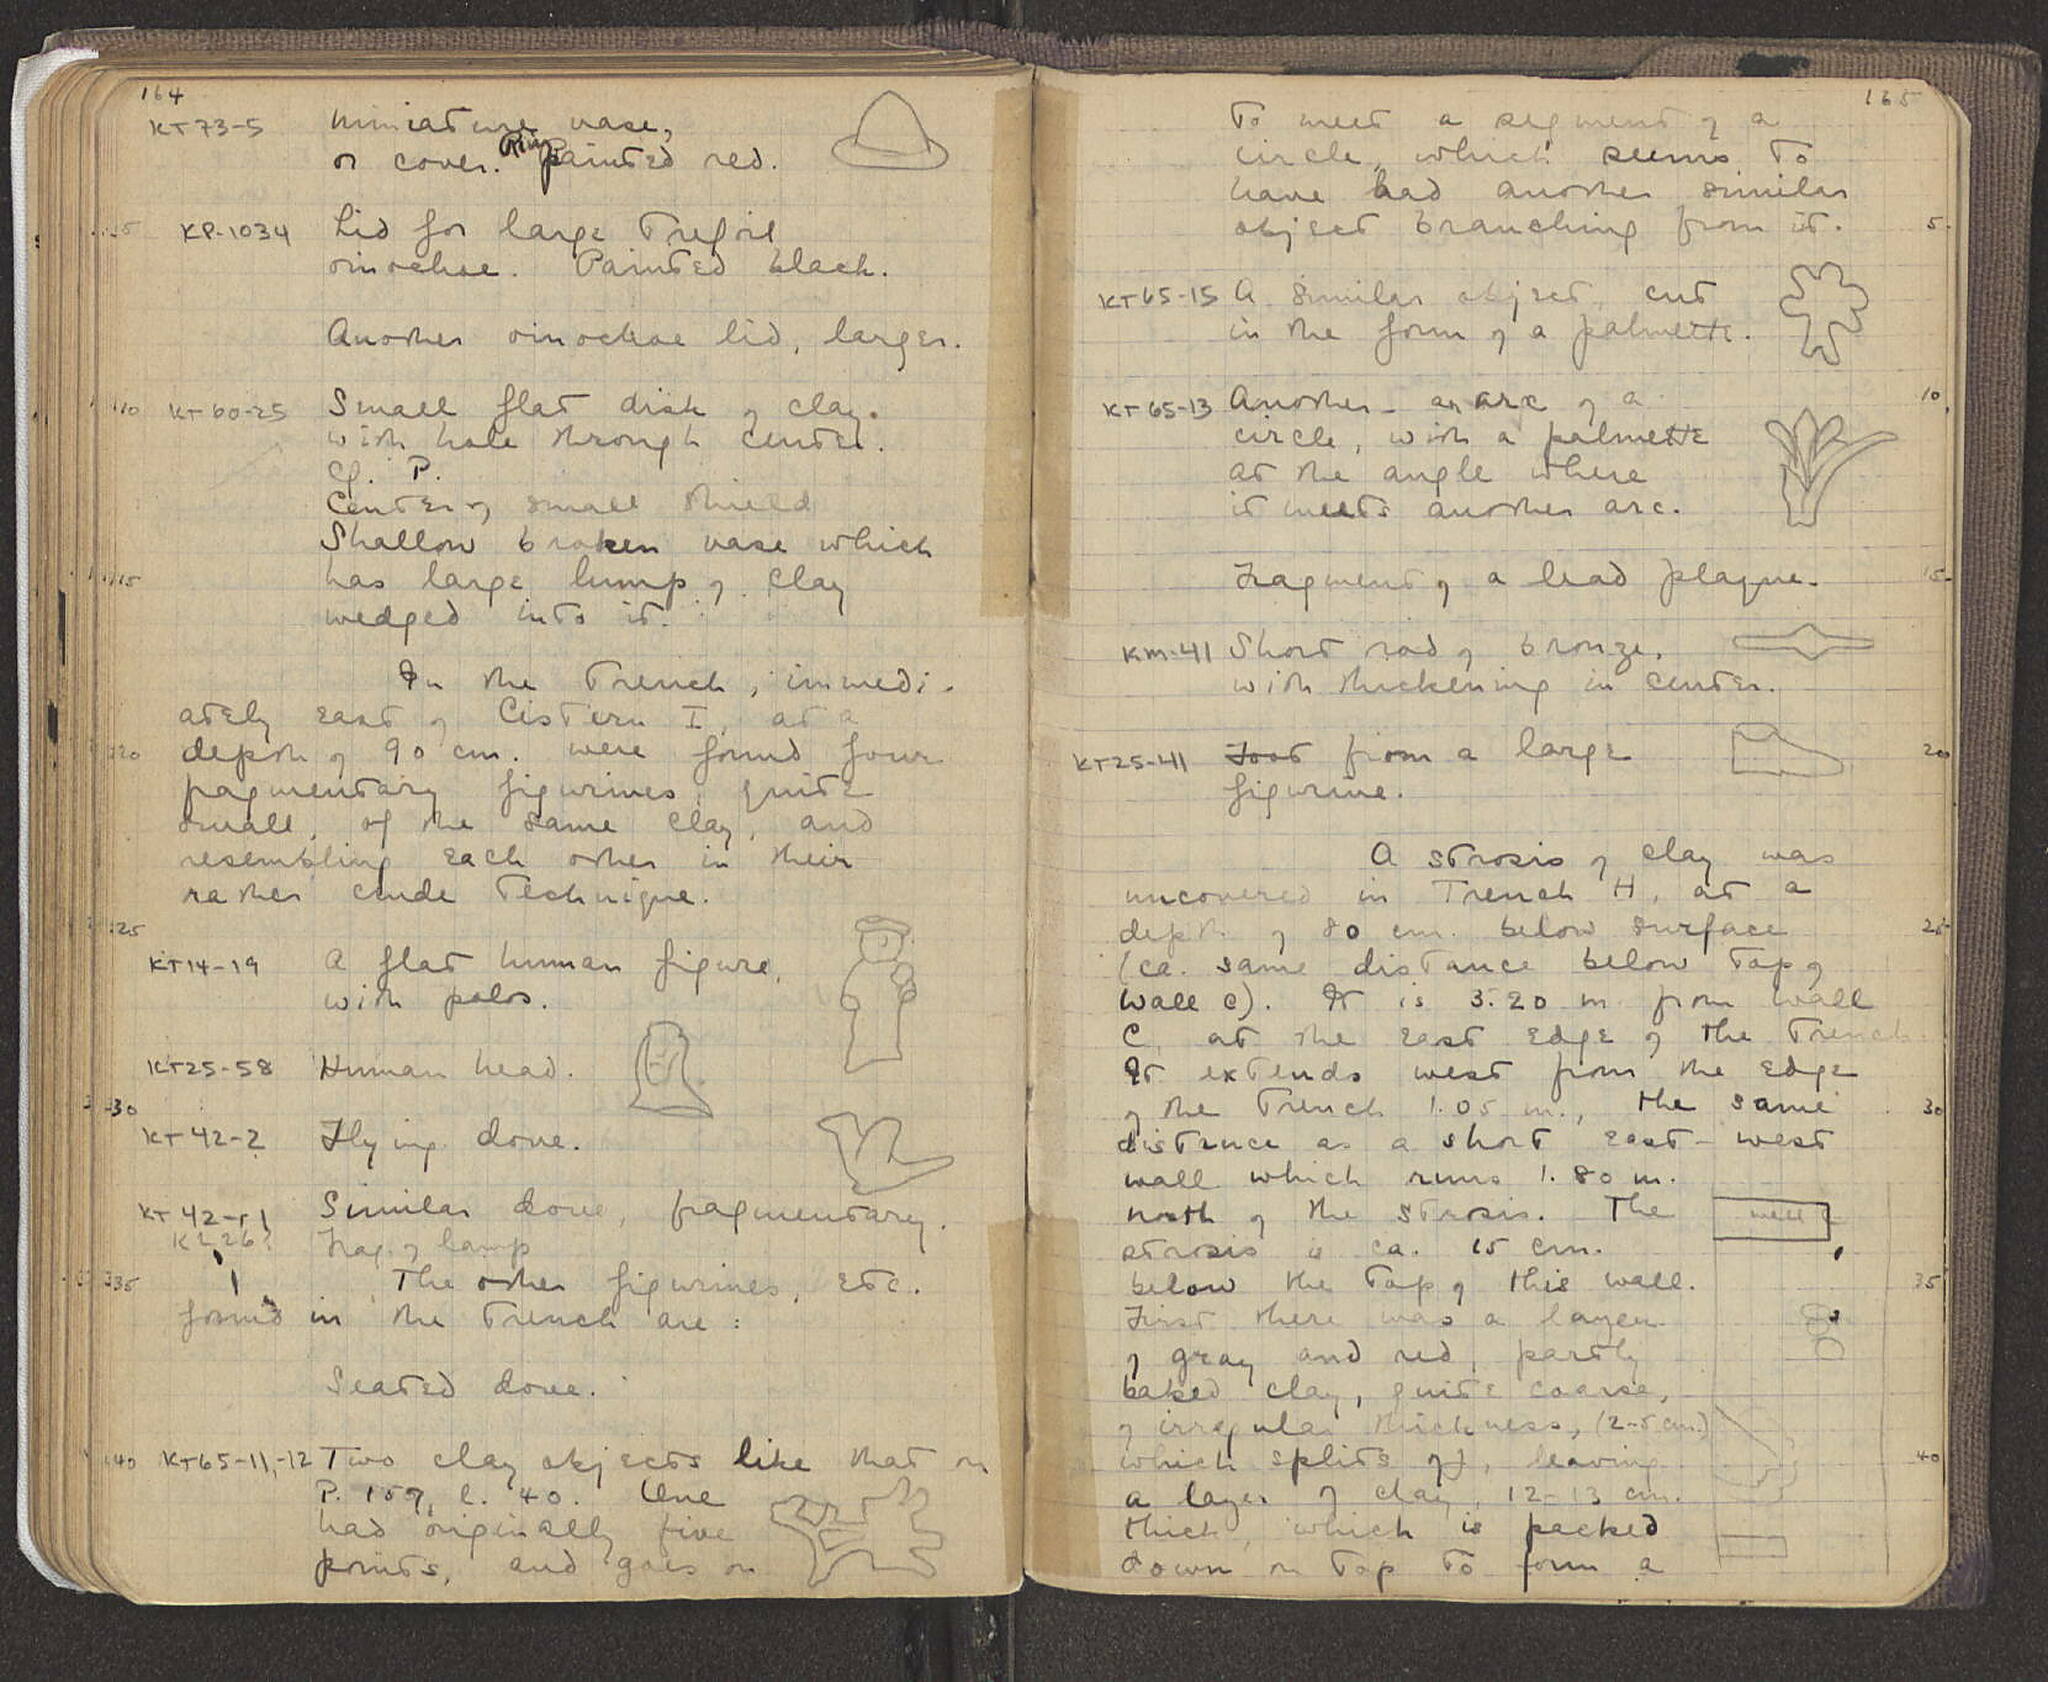 164
KT73-5 Miniature vase,
or cover. Rim Painted red.
5 KP-1034 Lid for large trefoil
oinochoe. Painted black.
Another oinochoe lid, larger.
10 KT60-25 Small flat disk of clay.
with hole through center.
Cf. P.
Center of small shield
Shallow broken vase which
15 has large lump of clay
wedged into it.
In the trench, immedi-
ately east of Cistern I, at a
20 depth of 90 cm. were found four
fragmentary figurines, quite
small, of the same clay, and
resembling each other in their
rather crude technique.
25
KT14-19 A flat human figure,
with polos.
KT25-58 Human head.
30
KT42-2 Flying dove.
KT42-r1 Similar dove, fragmentary.
KL26? Frag. of lamp
35 The other figurines, etc.
found in the trench are:
Seated dove.
40 KT65-11,-12 Two clay objects like that on
P. 157, l. 40. One
had originally five
points, and goes on
165
to meet a segment of a
circle, which seems to
have had another similar
object branching from it. 5
KT65-15 A similar object, cut
in the form of a palmette.
KT65-13 Another - an arc of a 10
circle, with a palmette
at the angle where
it meets another arc.
Fragment of a lead plaque. 15
KM-41 Short rod of bronze,
with thickening in center.
KT25-41 Foot from a large 20
figurine.
A strosis of clay was
uncovered in Trench H, at a
depth of 80 cm. below surface 25
(ca. same distance below top of
Wall C). It is 3.20 m from Wall
C, at the east edge of the trench.
It extends west from the edge
of the trench 1.05 m., the same 30
distnce as a short east-west
wall which runs 1.80 m.
north of the strosis. The wall
strosis is ca. 15 cm.
below the top of this wall. 35
First there was a layer
of gray and red, partly
baked clay, quite coarse,
of irregular thickness, (2-5 cm.)
which splits off, leaving 40
a layer of clay, 12-13 cm.
thick, which is packed
down on top to form a